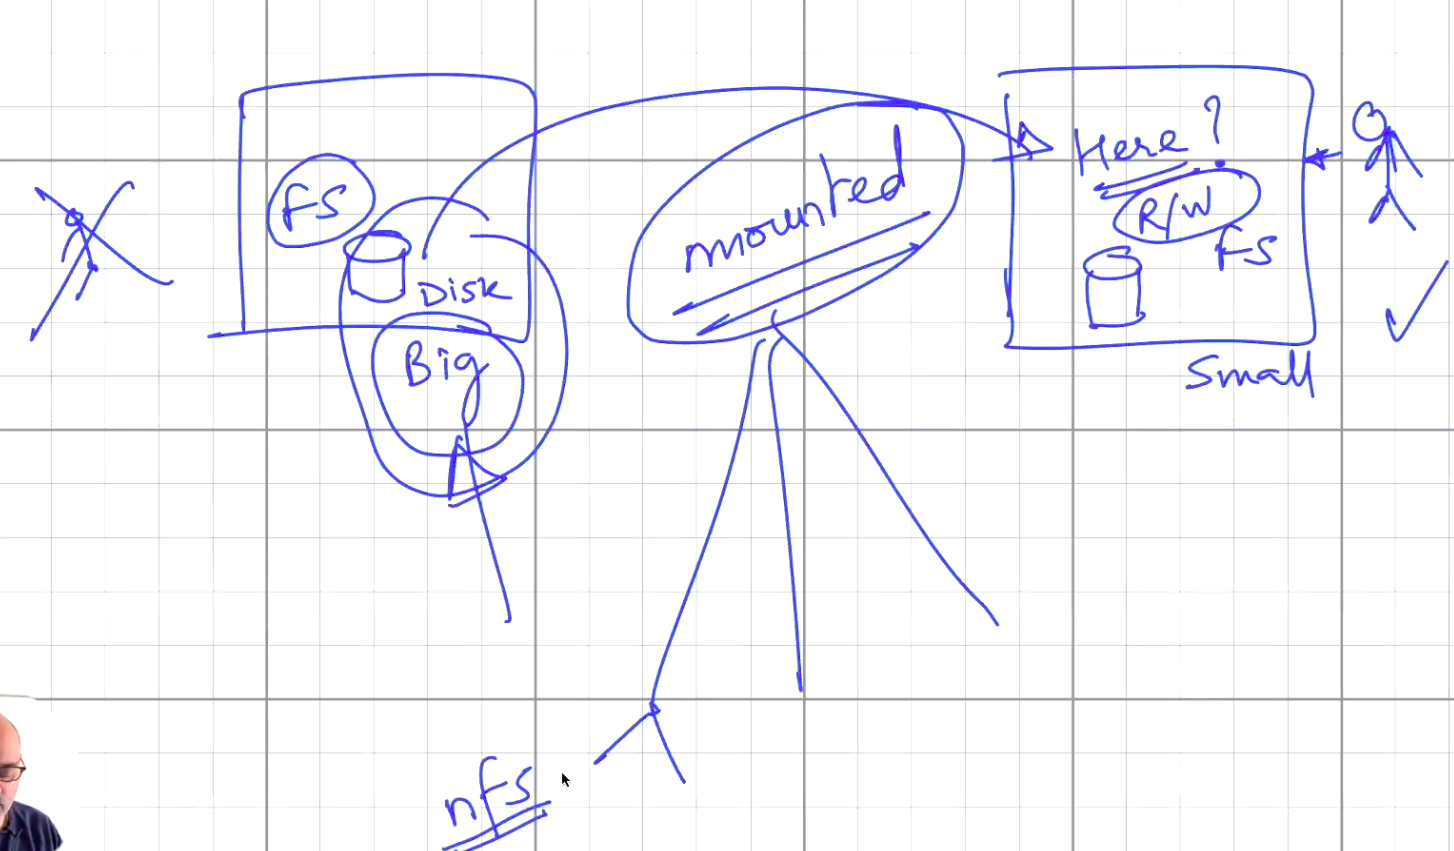 FS
Disk
Big
mounted
Here?
R/W
FS
Small
nfs